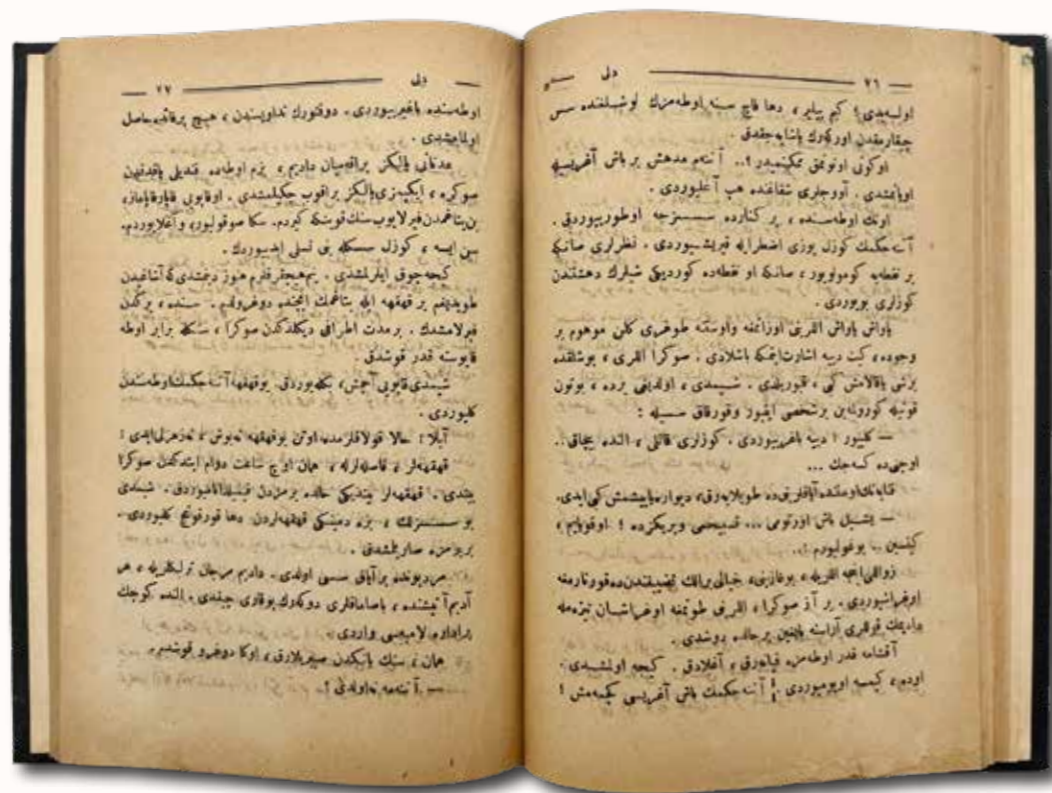 — ٧٦ — دلی —
اولسه‌یدی! کیم بیلیر، دها قاچ سنه اوطه‌مزك لوشلغنده سس
چیقارمقدن اورکه‌رك یاشایه‌جقدق.
اوکونی اونوتمق ممکنمیدر؟.. آننه‌م مدهش بر باش آغریسیله
اویانمشدی. آووجلری شقاغنده هپ آغلیوردی.
اونك اوطه‌سنده، بر کنارده سسسزجه اوطوریوردق.
آننه‌جکمك کوزل یوزی اضطرابله قیریشیوردی. نظرلری صانکه
بر نقطه‌یه کومولویور، صانکه او نقطه‌ده کوردیکی شیلرك دهشتندن
کوزلری بویوردی.
یاواش یاواش اللرینی اوزاتمغه واوسته طوغری کلن موهوم بر
وجوده، کیت دییه اشارت ایتمکه باشلادی. صوکرا اللری، بوشلقده
برشی یاقالامش کبی، قیوریلدی. شیمدی، اولدیغی یرده، بوتون
قوتیله کورونمه‌ین برشخصی ایتیور وقورقاق سسیله:
— کلیور! دییه باغیریوردی. کوزلری قانلی، النده بیچاق..
اوچنی‌ده کسه‌جك ...
قنابه‌نك اوستنده آیاقلرینی‌ده طوپلایه‌رق، دیواره یاپیشمش کبی ایدی.
— یشیل باش اورتومی... تسبیحمی ویریکزده! اوقویایم،
کیتسین.. بوغولیورم!..
زواللی اینجه اللریله، بوغازینی، خیالی برالك تضییقندن ده قورتارمغه
اوغراشیوردی. بر آز صوکرا، اللرینی طوتمغه اوغراشان تیزه‌مله
دادیمك قوللری آراسنه بایغین برحالده دوشدی.
آقشامه قدر اوطه‌مزه قپانه‌رق، آغلادق. کیجه اولمشدی.
اوده، کیمسه اویومیوردی. آننه‌جکمك باش آغریسی کچمه‌مش!
— دلی — ٧٧ —
اوطه‌سنده باغیریوردی. دوقتورك تداویسندن، هیچ برفائده حاصل
اولمامشدی.
بیزم اوطه‌ده قندیلی یاقدقدن
صوکره، ایکیمزی یالکز براقوب چکیلمشدی. اوقاپویی قاپار قاپاماز،
بن یتاغمدن فیرلایوب سنك قوینکه کیردم. سکا صوقولیور، وآغلایوردم.
سن ایسه، کوزل سسکله بنی تسلی ایدییوردك.
کیجه چوق ایلریلمشدی. هنوز دینمشدی که آشاغیدن
طویدیغم بر قهقهه ایله یتاغمك ایچنده دوغرولدم. سنده، بر‌کدن
فیرلامشدك. برمدت اطرافی دیکله‌دکدن صوکرا، سنکله برابر اوطه
قاپوسنه قدر قوشدق.
شیمدی قاپویی آچمش، بکله‌یوردق. بوقهقهه آننه‌جکمك اوطه‌سندن
کلیوردی.
آبلا! حالا قولاقلرمده اوتن بوقهقهه نه‌بوش، نه‌زهرلی ایدی!
قهقهه‌لر، فاصله‌لرله، همان اوچ ساعت دوام ایتدکدن صوکرا
بیتدی. قهقهه‌لر بیتدیکی حالده یرمزدن قیمیلدانامیوردق. شیمدی
بو سسسزلك، بزه دمینکی قهقهه‌لردن دها قورقونج کلیوردی.
بربرمزه صاریلمشدق.
مردیونده برآیاق سسی اولدی. دادیم مرجان ترلکلریله، هر
آدیم آتیشنده، باصاماقلری دوکه‌رك یوقاری چیقدی. النده کوچك
براداره لامبه‌سی واردی.
همان، سنك یانکدن صیریلارق، اوکا دوغرو قوشدم.
— آننه‌مه نه‌اولدی؟